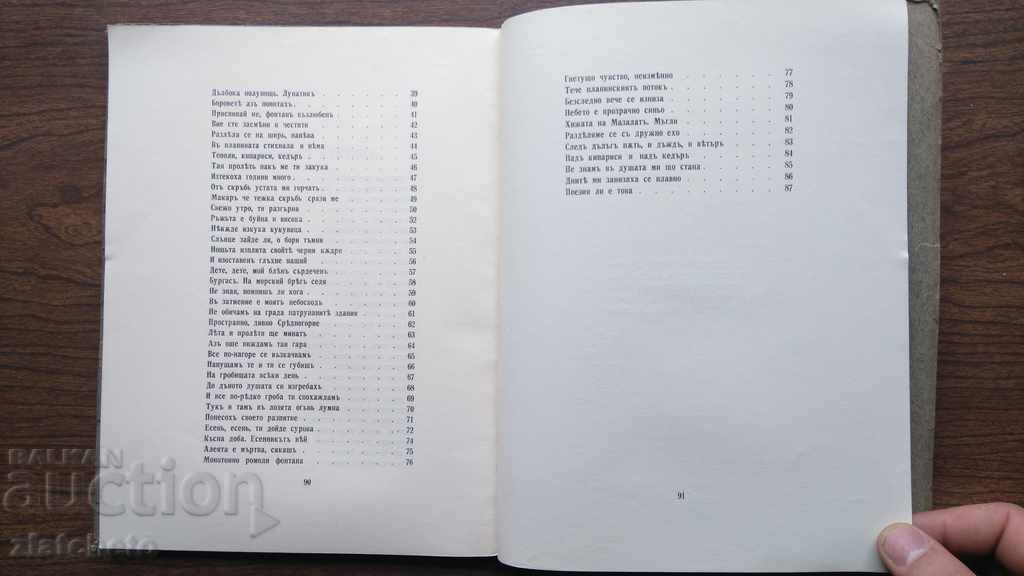 Дълбока полунощь. Лунатикъ 39
Боровете азъ попитахъ 40
Приспивай не, фонтанъ възлюбенъ 41
Вие сте засмѣни и честити 42
Разлѣла се на ширь, напѣва 43
Въ планината стихнала и нѣма 44
Тополи, кипариси, кедъръ 45
Тая пролѣть пакъ ме ти закука 46
Изтекоха години много 47
Отъ скръбь устата ми горчатъ 48
Макаръ че тежка скръбь срази ме 49
Свежо утро, ти разгърна 50
Ръжьта е буйна и висока 52
Нѣкѫде изкука кукувица 53
Слънце зайде ли, о бори тъмни 54
Нощьта изплита свойтѣ черни кѫдри 55
И изоставенъ глъхне нашия 56
Дете, дете, мой блѣнъ сърдеченъ 57
Бургасъ. На морский брѣгъ седя 58
Не зная, помнишъ ли кога 59
Въ затмение е моятъ небосводъ 60
Не обичамъ на града натрупанитѣ здания 61
Пространно, дивно Срѣдногорие 62
Лѣта и пролѣти ще минатъ 63
Азъ още виждамъ тая гара 64
Все по-нагоре се възкачвамъ 65
Напущамъ те и ти се губишъ 66
На гробища всѣки день 67
До дъното душата си изгребахъ 68
И все по-рѣдко гроба ти спохаждамъ 69
Тукъ и тамъ въ лозята огънь лумна 70
Понесохъ своето разпятие 71
Есень, есень, ти дойде сурова 72
Късна доба. Есенникътъ вѣй 74
Алеята е мъртва, сякашъ 75
Монотонно ромоли фонтана 76
90
Гнетущо чувство, неизмѣнно 77
Тече планинскиятъ потокъ 78
Безследно вече се изниза 79
Небето е прозрачно синьо 80
Хижата на Мазалатъ. Мъгли 81
Раздѣляме се съ дружно ехо 82
Следъ дългъ пѫть, и дъждъ, и вѣтъръ 83
Надъ кипариси и надъ кедъръ 84
Не знамъ въ душата ми що стана 85
Днитѣ ми занизаха се плавно 86
Поезия ли е това 87
91
BALKAN
auction
zlatcheto